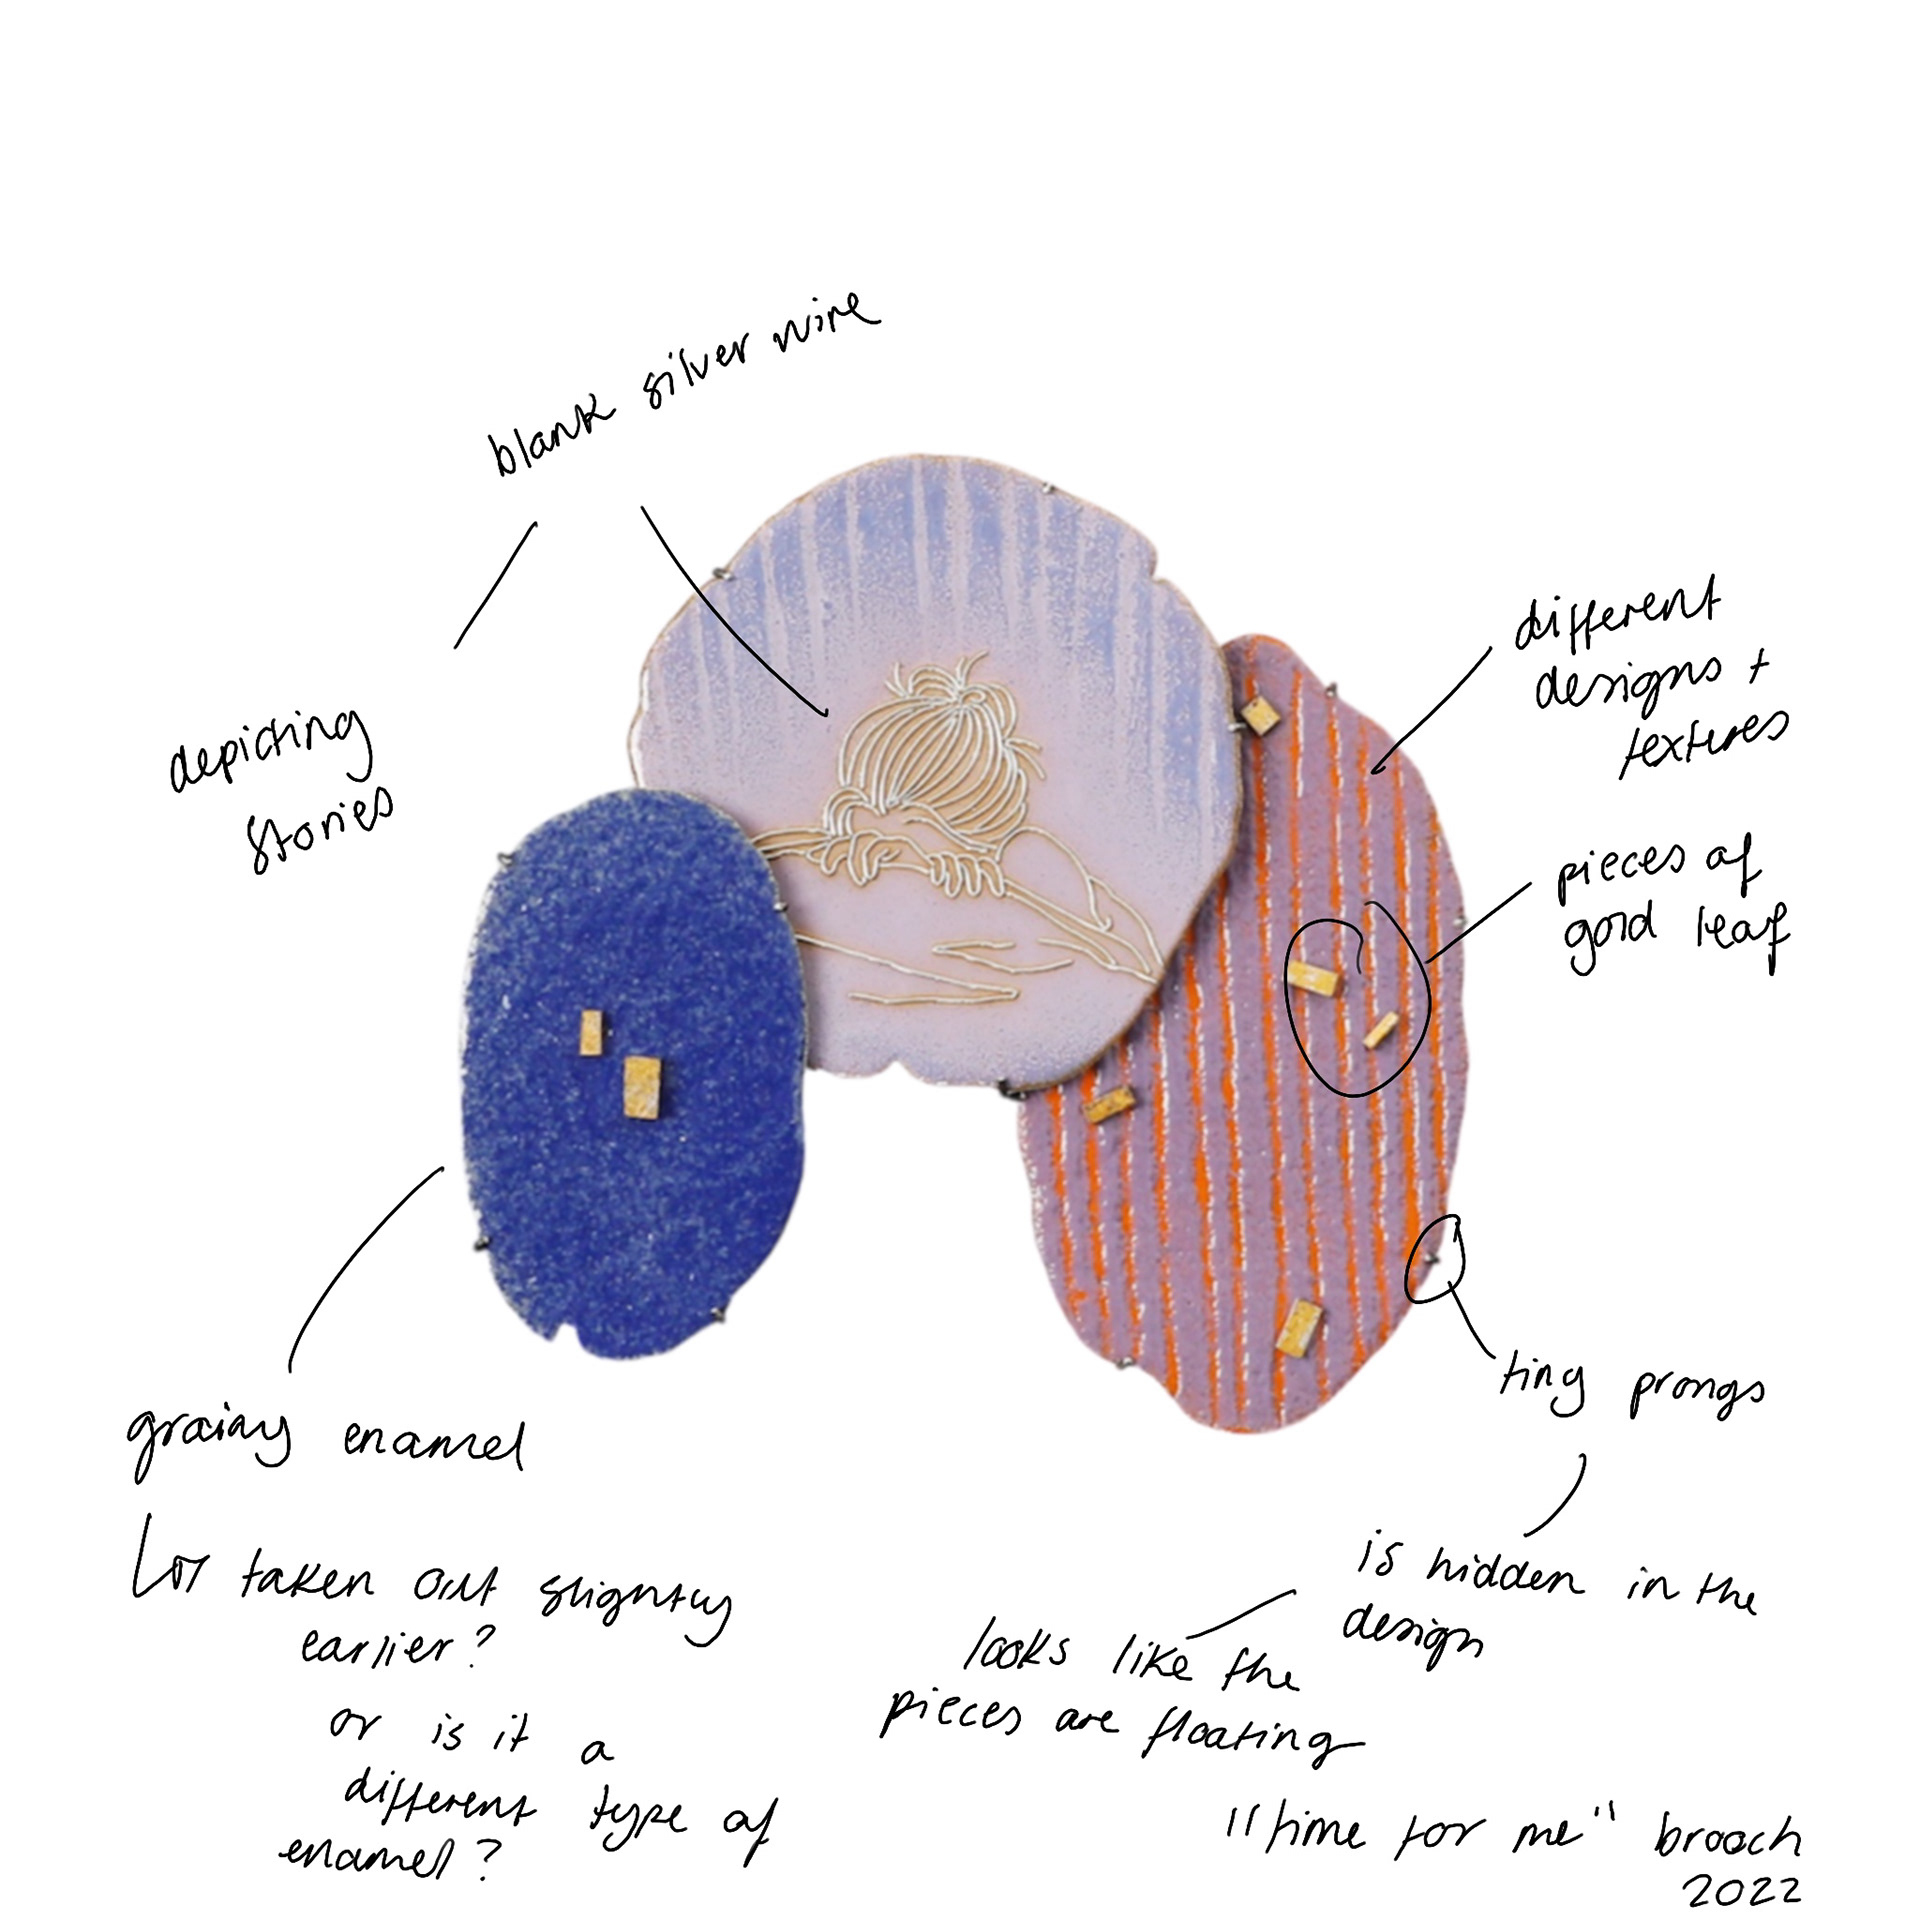 blank silver wire
depicting
stories
different
designs +
textures
pieces of
gold leaf
grainy enamel
or taken out slightly
earlier?
or is it a
different type of
enamel?
tiny prongs
is hidden in the
design
looks like the
pieces are floating
"time for me" brooch
2022